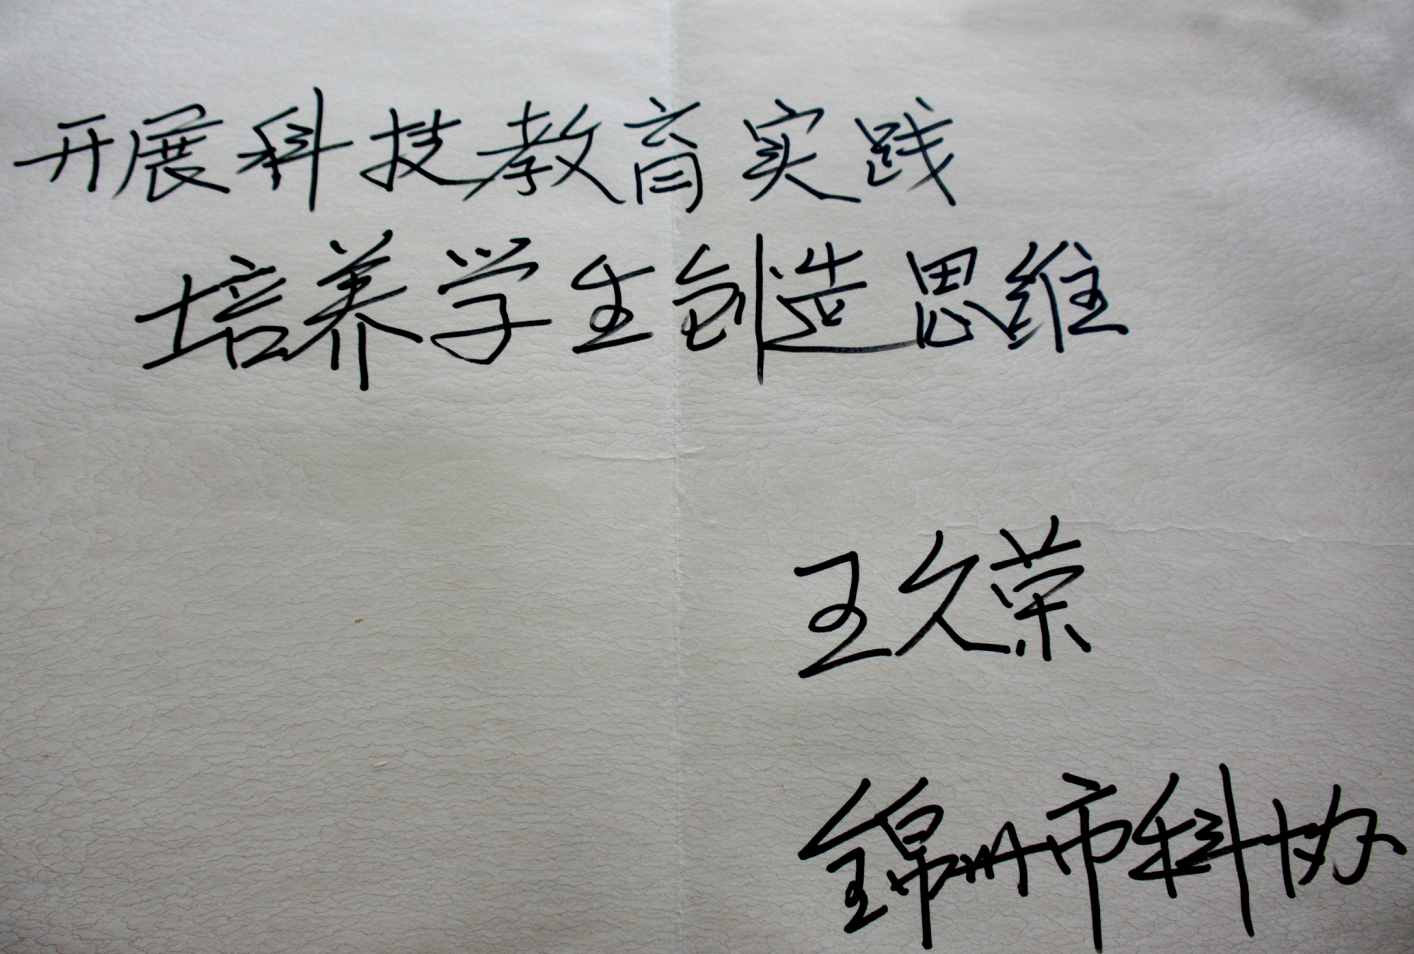 开展科技教育实践
培养学生创造思维
王久荣
锦州市科协